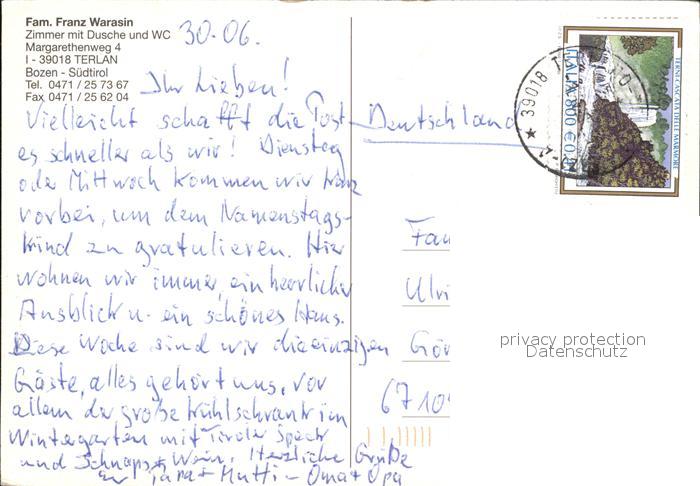 Fam. Franz Warasin
Zimmer mit Dusche und WC
Margarethenweg 4
I - 39018 TERLAN
Bozen - Südtirol
Tel. 0471 / 25 73 67
Fax 0471 / 25 62 04
30.06.
Ihr Lieben!
Vielleicht schafft die Post
es schneller als wir! Dienstag
oder Mittwoch kommen wir kurz
vorbei, um dem Namenstags-
kind zu gratulieren. Hier
wohnen wir immer, ein herrlicher
Ausblick u. ein schönes Haus.
Diese Woche sind wir die einzigen
Gäste, alles gehört uns, vor
allem der große Kühlschrank im
Wintergarten mit Tiroler Speck
und Schnaps + Wein. Herzliche Grüße
Papa + Mutti - Oma + Opa
Deutschland
Fam
Ulri
Gör
6710
ITALIA 800 € 0,41
TERNI: CASCATA DELLE MARMORE
39018
privacy protection
Datenschutz